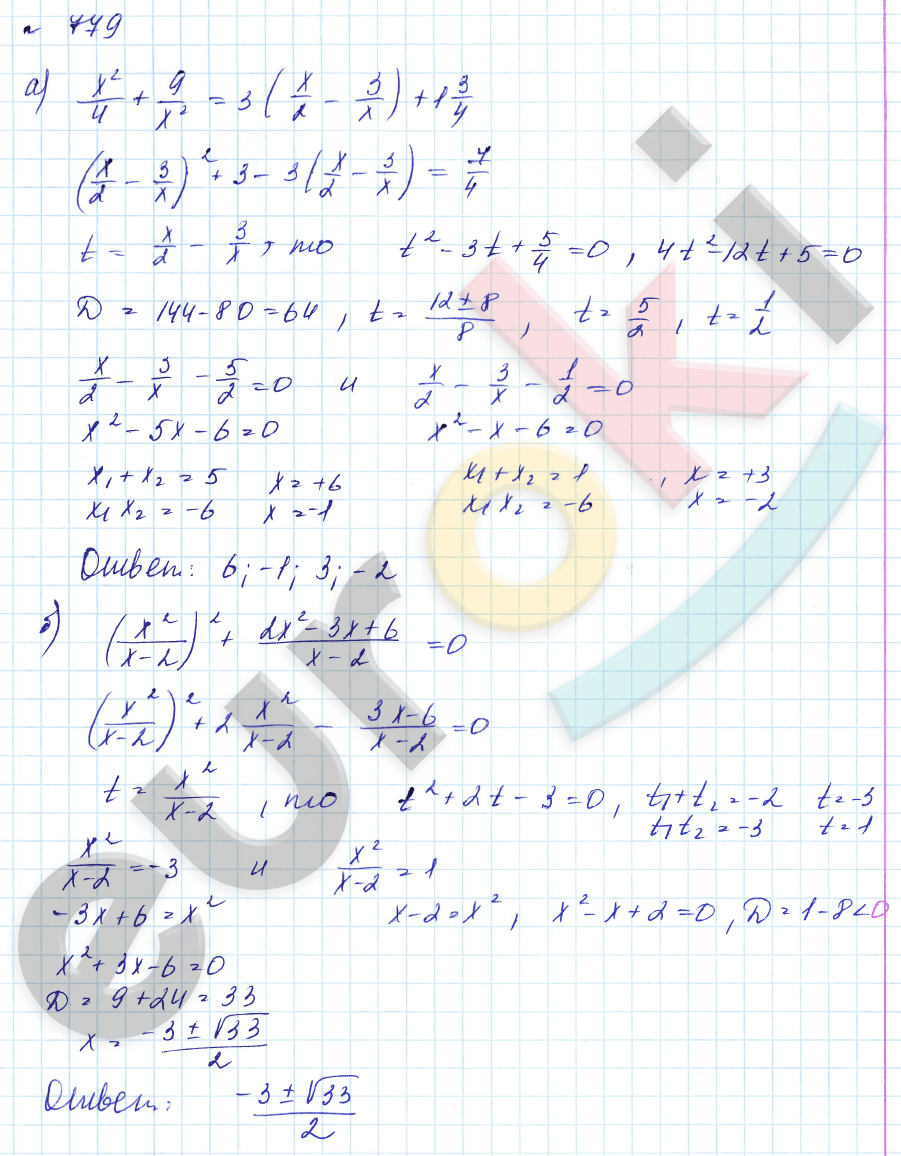 № 779
а) x²/4 + 9/x² = 3(x/2 − 3/x) + 1 3/4
(x/2 − 3/x)² + 3 − 3(x/2 − 3/x) = 7/4
t = x/2 − 3/x, то t² − 3t + 5/4 = 0, 4t² − 12t + 5 = 0
D = 144 − 80 = 64, t = (12 ± 8)/8, t = 5/2, t = 1/2
x/2 − 3/x − 5/2 = 0 и x/2 − 3/x − 1/2 = 0
x² − 5x − 6 = 0 x² − x − 6 = 0
x₁ + x₂ = 5 x = +6 x₁ + x₂ = 1, x = +3
x₁x₂ = −6 x = −1 x₁x₂ = −6 x = −2
Ответ: 6; −1; 3; −2
б) (x²/(x−2))² + (2x² − 3x + 6)/(x−2) = 0
(x²/(x−2))² + 2 x²/(x−2) − (3x−6)/(x−2) = 0
t = x²/(x−2), то t² + 2t − 3 = 0, t₁ + t₂ = −2 t = −3
t₁t₂ = −3 t = 1
x²/(x−2) = −3 и x²/(x−2) = 1
−3x + 6 = x² x − 2 = x², x² − x + 2 = 0, D = 1 − 8 < 0
x² + 3x − 6 = 0
D = 9 + 24 = 33
x = (−3 ± √33)/2
Ответ: (−3 ± √33)/2
euroki